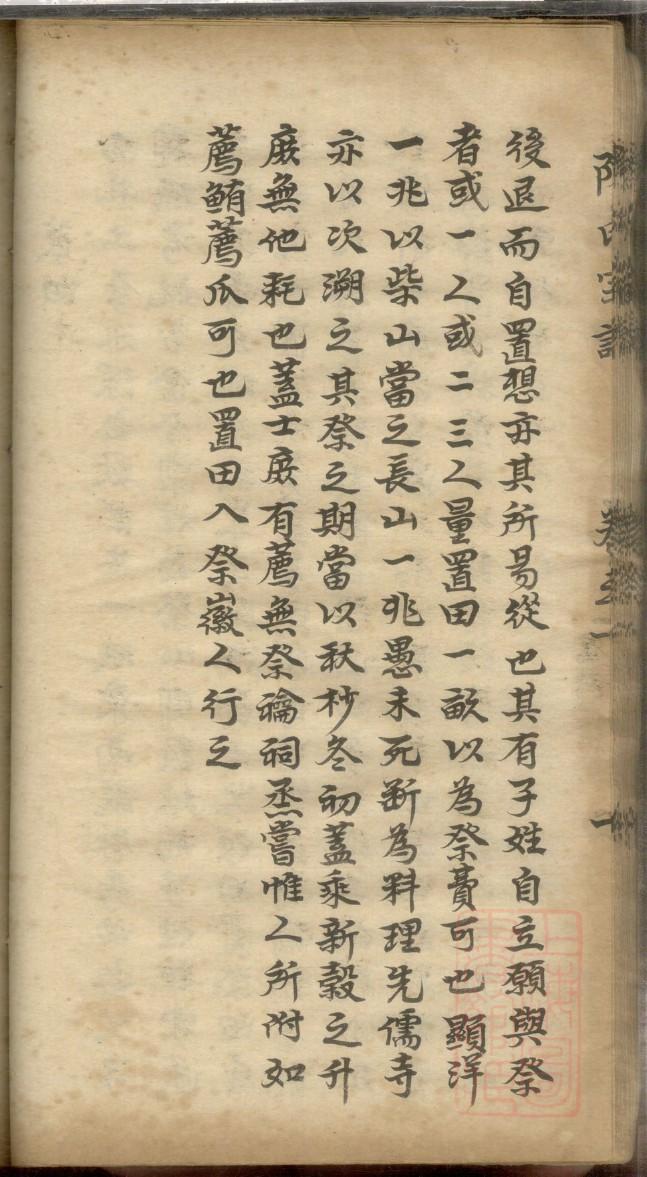 後退而自置想亦其所易從也其有子姓自立願與祭
者或一人或二三人量置田一畝以為祭費可也顯洋
一兆以柴山當之長山一兆愚未死斷為料理先儒寺
亦以次溯之其祭之期當以秋杪冬初蓋乘新穀之升
庶無他耗也蓋士庶有薦無祭禴祠烝嘗惟人所附如
薦鮪薦瓜可也置田入祭嶶人行之